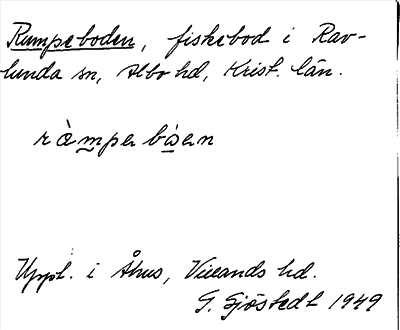 Rumpeboden, fiskebod i Rav-
lunda sn, Albo hd, Krist. län.
Uppt. i Åhus, Villands hd.
G. Sjöstedt 1949